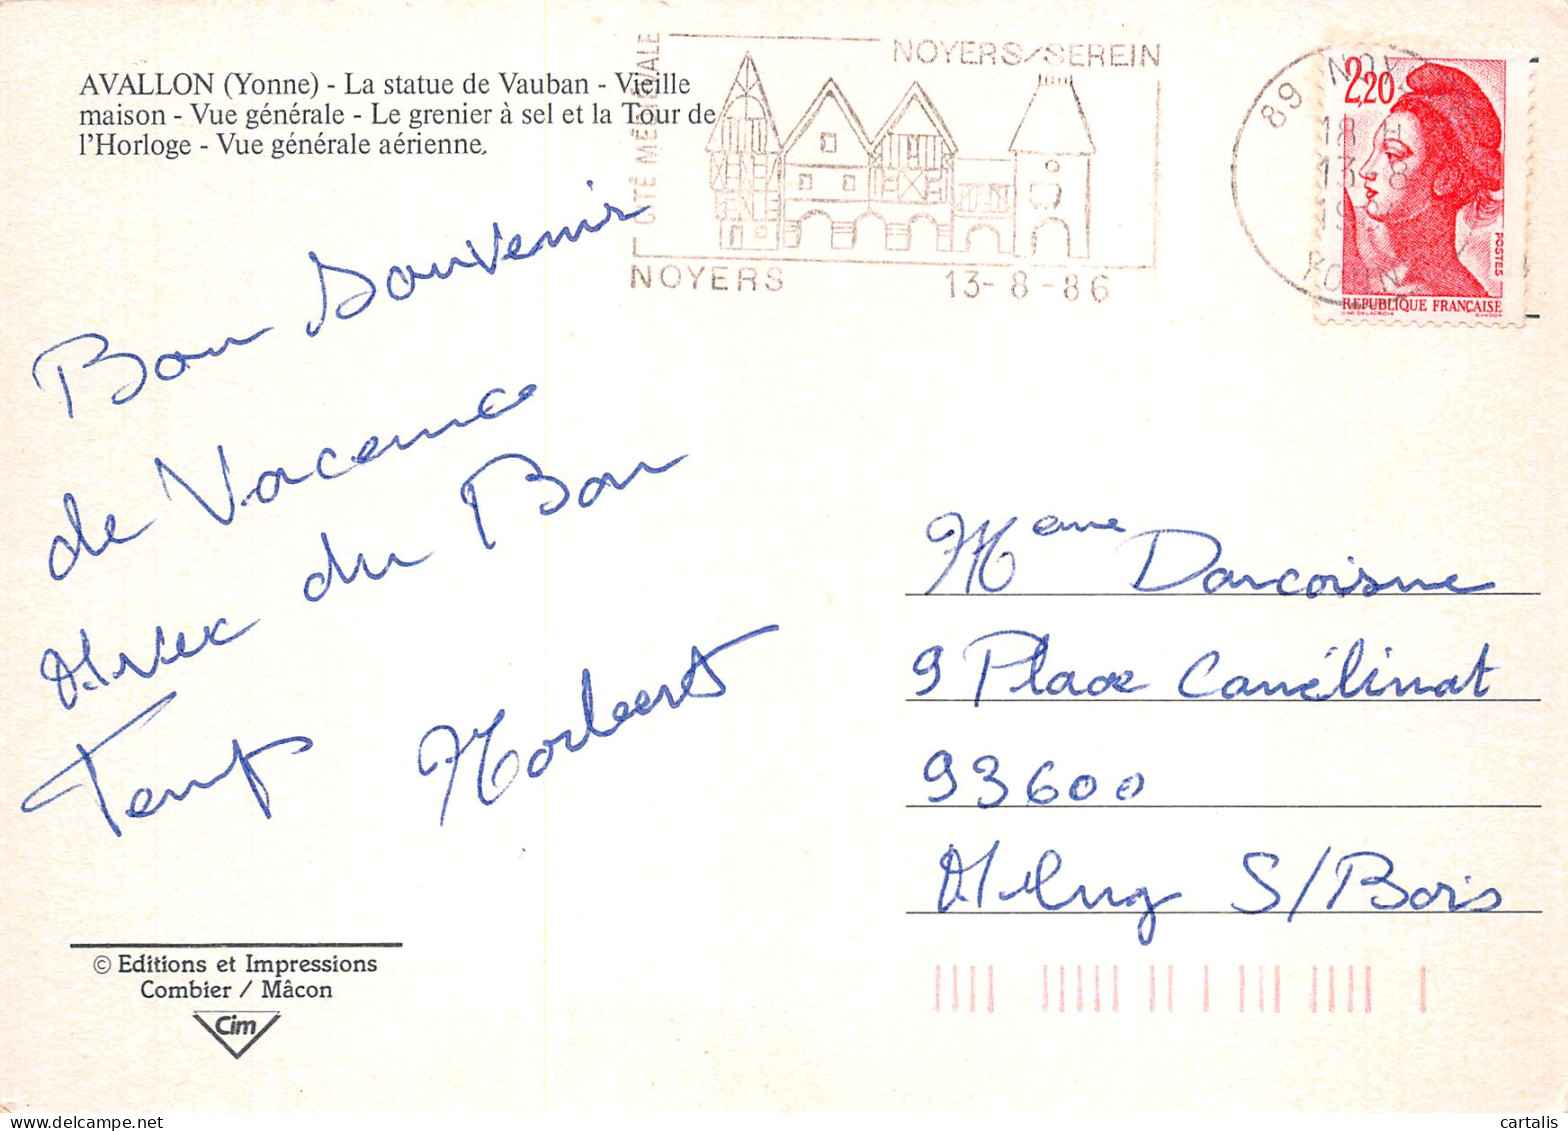 AVALLON (Yonne) - La statue de Vauban - Vieille
maison - Vue générale - Le grenier à sel et la Tour de
l'Horloge - Vue générale aérienne.
CITÉ MÉDIÉVALE
NOYERS/SEREIN
NOYERS 13-8-86
89 NOY
18 H
13-8
YONNE
2,20
POSTES
REPUBLIQUE FRANÇAISE
Bon Souvenir
de Vacance
Avec du Bon
Temps Norbert
Mme Darcoisne
9 Place Camélinat
93600
Aulnay S/Bois
© Editions et Impressions
Combier / Mâcon
Cim
cartalis